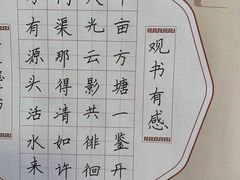 观书有感
亩方塘一鉴开
光云影共徘徊
渠那得清如许
有源头活水来